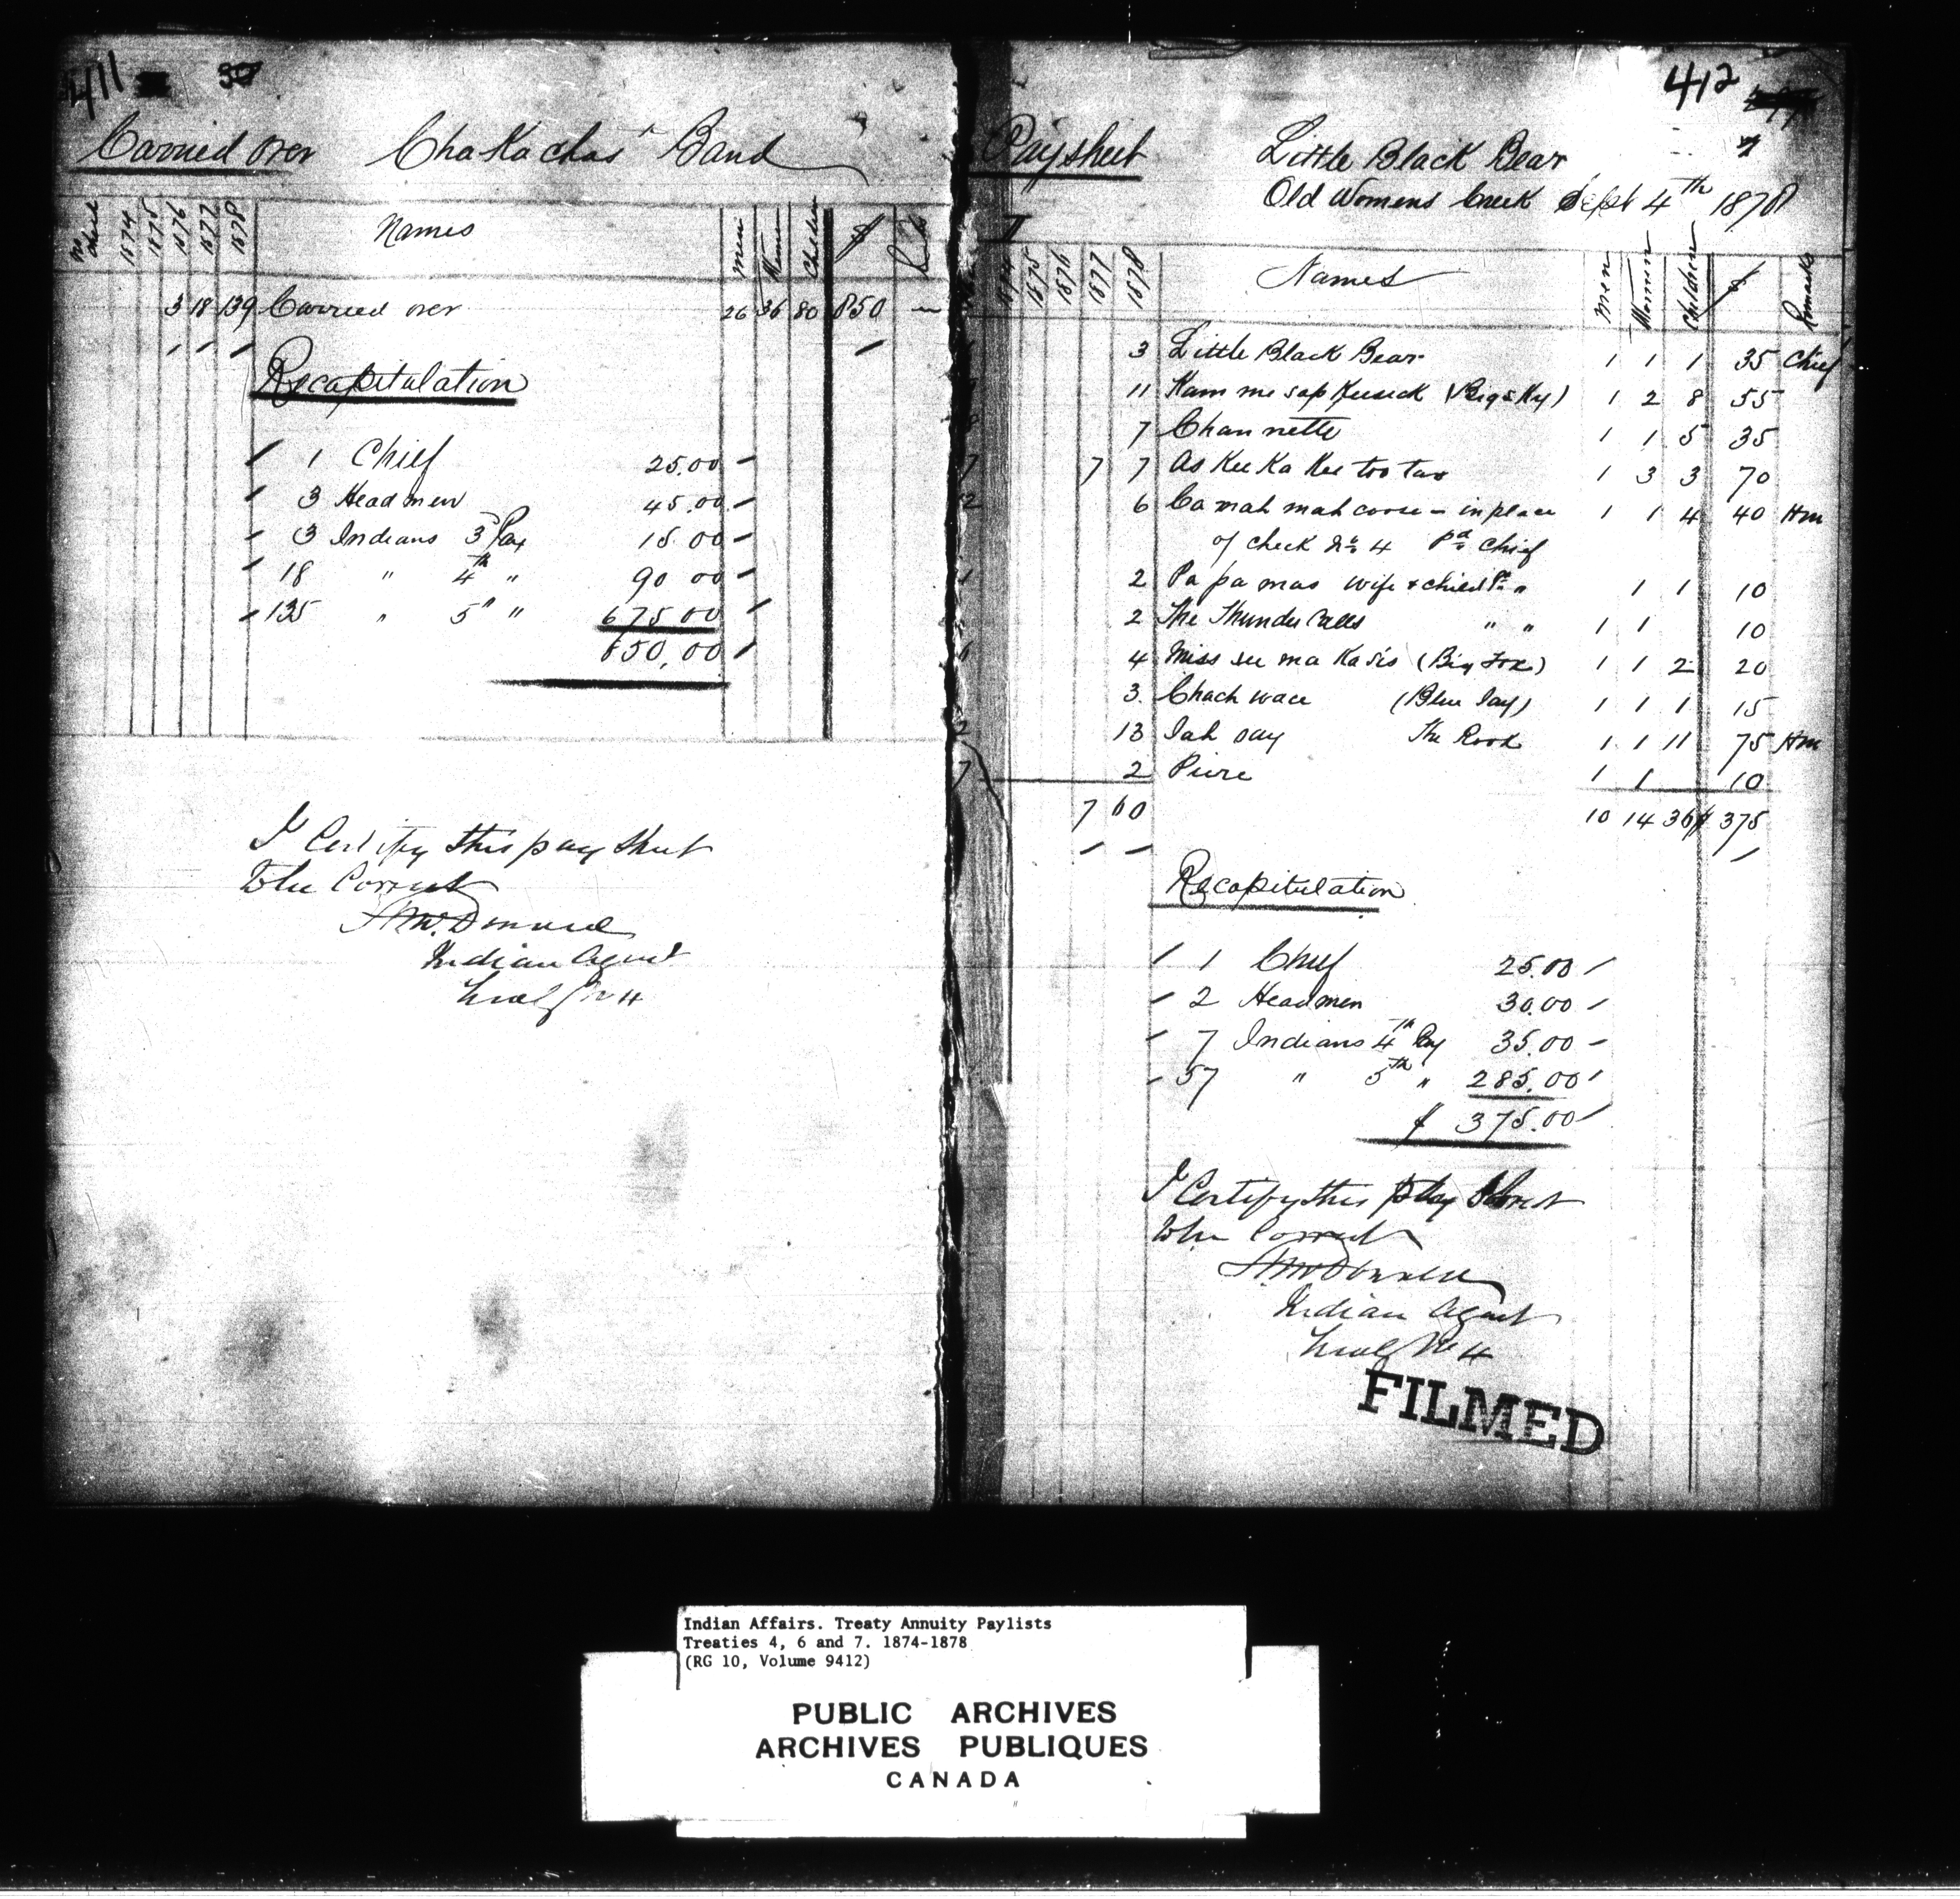 411 30
Carried over Chakachas' Band
No check 1874 1875 1876 1877 1878 Names Men Women Children $
3 18 139 Carried over 26 36 80 850 —
Recapitulation
1 Chief 25.00
3 Headmen 45.00
3 Indians 3rd Pay 15.00
18 " 4th " 90 00
135 " 5th " 675 00
850,00
I Certify this pay sheet
to be Correct
A McDonald
Indian Agent
Treaty No 4
412
Paysheet Little Black Bear
Old Womens Creek Sept 4th 1878
1874 1875 1876 1877 1878 Names Men Women Children $ Remarks
3 Little Black Bear 1 1 1 35 Chief
11 Kam me sap keesick (Big Sky) 1 2 8 55
7 Channette 1 1 5 35
7 7 As Kee Ka Kee too tao 1 3 3 70
6 Ca mah mah coose – in place 1 1 4 40 Hm
of check No 4 pd Chief
2 Pa pa mas wife & child pd " 1 1 10
2 The Thunder Calls " " 1 1 10
4 Miss see ma Ka sis (Big Fox) 1 1 2 20
3 Chach wace (Blue Jay) 1 1 1 15
13 Jah say The Rook 1 1 11 75 Hm
2 Piere 1 1 10
7 60 10 14 36 $ 375
Recapitulation
1 Chief 25.00
2 Headmen 30.00
7 Indians 4th Pay 35.00
57 " 5th " 285.00
$ 375.00
I Certify this pay Sheet
to be Correct
A McDonald
Indian Agent
Treaty No 4
FILMED
Indian Affairs. Treaty Annuity Paylists
Treaties 4, 6 and 7. 1874-1878
(RG 10, Volume 9412)
PUBLIC ARCHIVES
ARCHIVES PUBLIQUES
CANADA